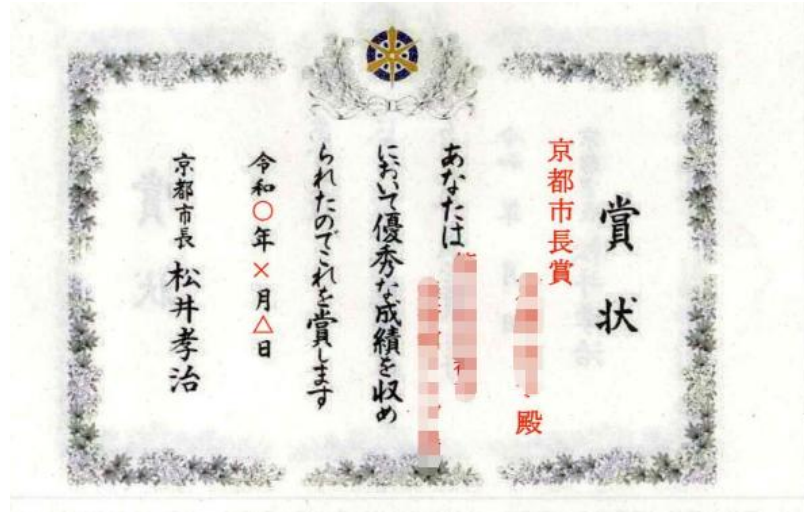 賞状
京都市長賞
殿
あなたは
において優秀な成績を収め
られたのでこれを賞します
令和〇年×月△日
京都市長 松井孝治